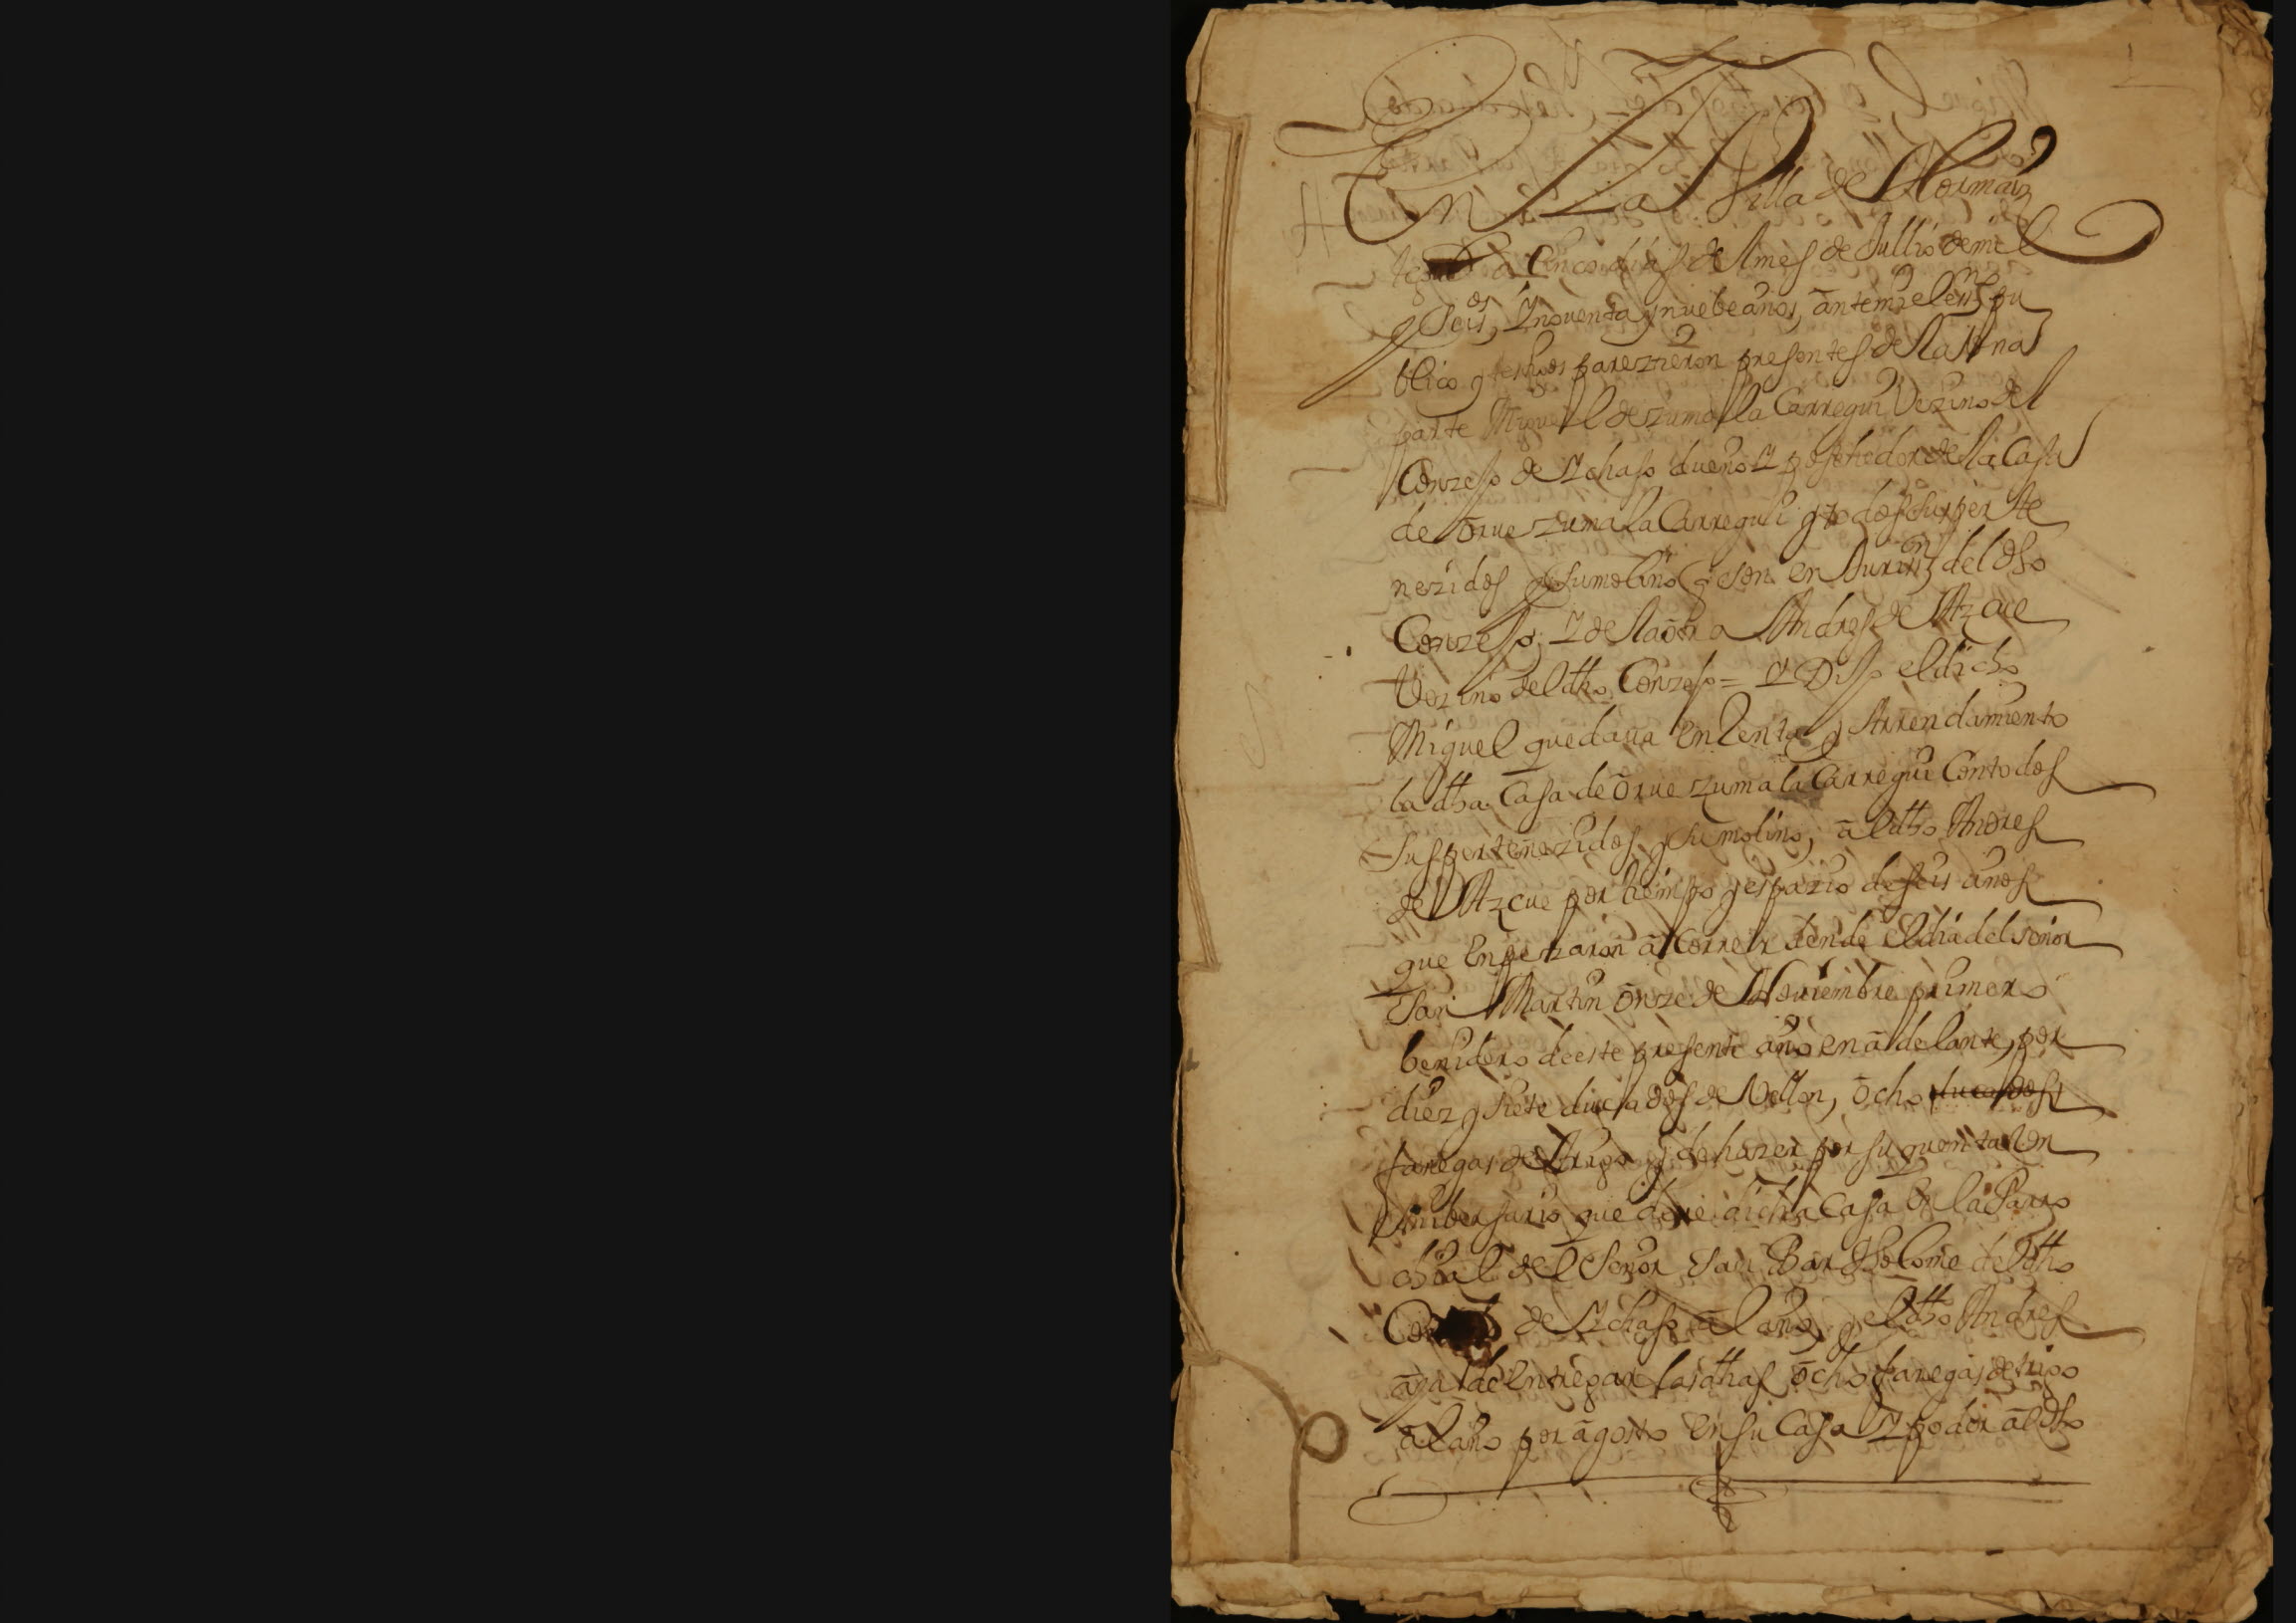 En La Villa de Hormaiz
tegui a Cinco dias del mes de Jullio de mil
y seisos, y noventa y nuebe años, ante mi el essno pu
blico y testigos parezieron presentes de la una
parte Miguel de zumala Carregui Vezino del
Conzejo de Ychaso dueño y posehedor de la Casa
de orue zumala Carregui y todos sus perte
nezidos y su molino q son en Jurion del dho
Conzejo, y de la otra Andres de Azcue
Vezino del dho Conzejo = y Dijo el dicho
Miguel que daua en Renta y Arrendamiento
la dha Casa de orue zumala Carregui Con todos
sus pertenezidos y su molino, a el dho Andres
de Azcue por tiempo y espazio de seis años
que Enpezaron a Correr dende el dia del señor
San Martin onze de Nouiembre primero
benidero de este presente año en adelante, por
diez y siete ducados de Vellon, ocho ducados
fanegas de trigo y de hazer por su quenta el an
nibersario que deue dicha Casa en la Parro
chial del Señor San Bartholome del dho
de Ychaso al año, y el dho Andres
aya de Entregar las dhas ocho fanegas de trigo
al año por agosto En su Casa y poder al dho